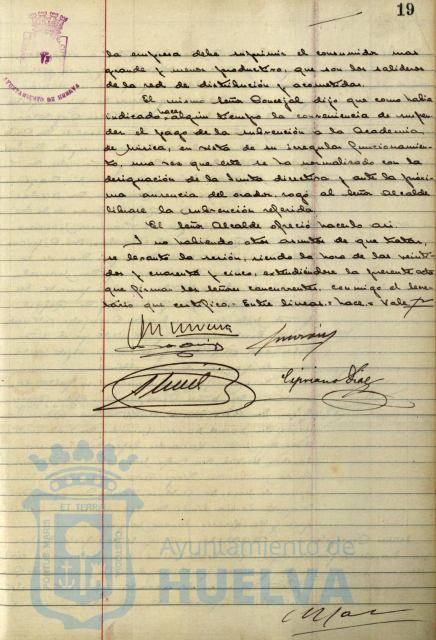 19
AYUNTAMIENTO DE HUELVA
la empresa debe suprimir el consumidor mas
grande y menos productivo, que son los salideros
de la red de distribución y acometidas.
El mismo Señor Concejal dijo que como había
hace
indicado algún tiempo la conveniencia de suspen-
der el pago de la subvención a la Academia
de Música, en vista de su irregular funcionamien-
to, una vez que este se ha normalizado con la
designación de la Junta directiva y ante la próxi-
ma ausencia del orador, rogó al Señor Alcalde
librase la subvención referida.
El Señor Alcalde ofreció hacerlo así.
Y no habiendo otros asuntos de que tratar,
se levantó la sesión, siendo la hora de las veinti-
dos y cuarenta y cinco, extendiéndose la presente acta
que firman los señores concurrentes, conmigo el Secre-
tario que certifico.- Entre lineas.= hace.= Vale
Cipriano Díaz
ET TERRA
PORTUS MARIS
CUSTODIA
Ayuntamiento de
HUELVA